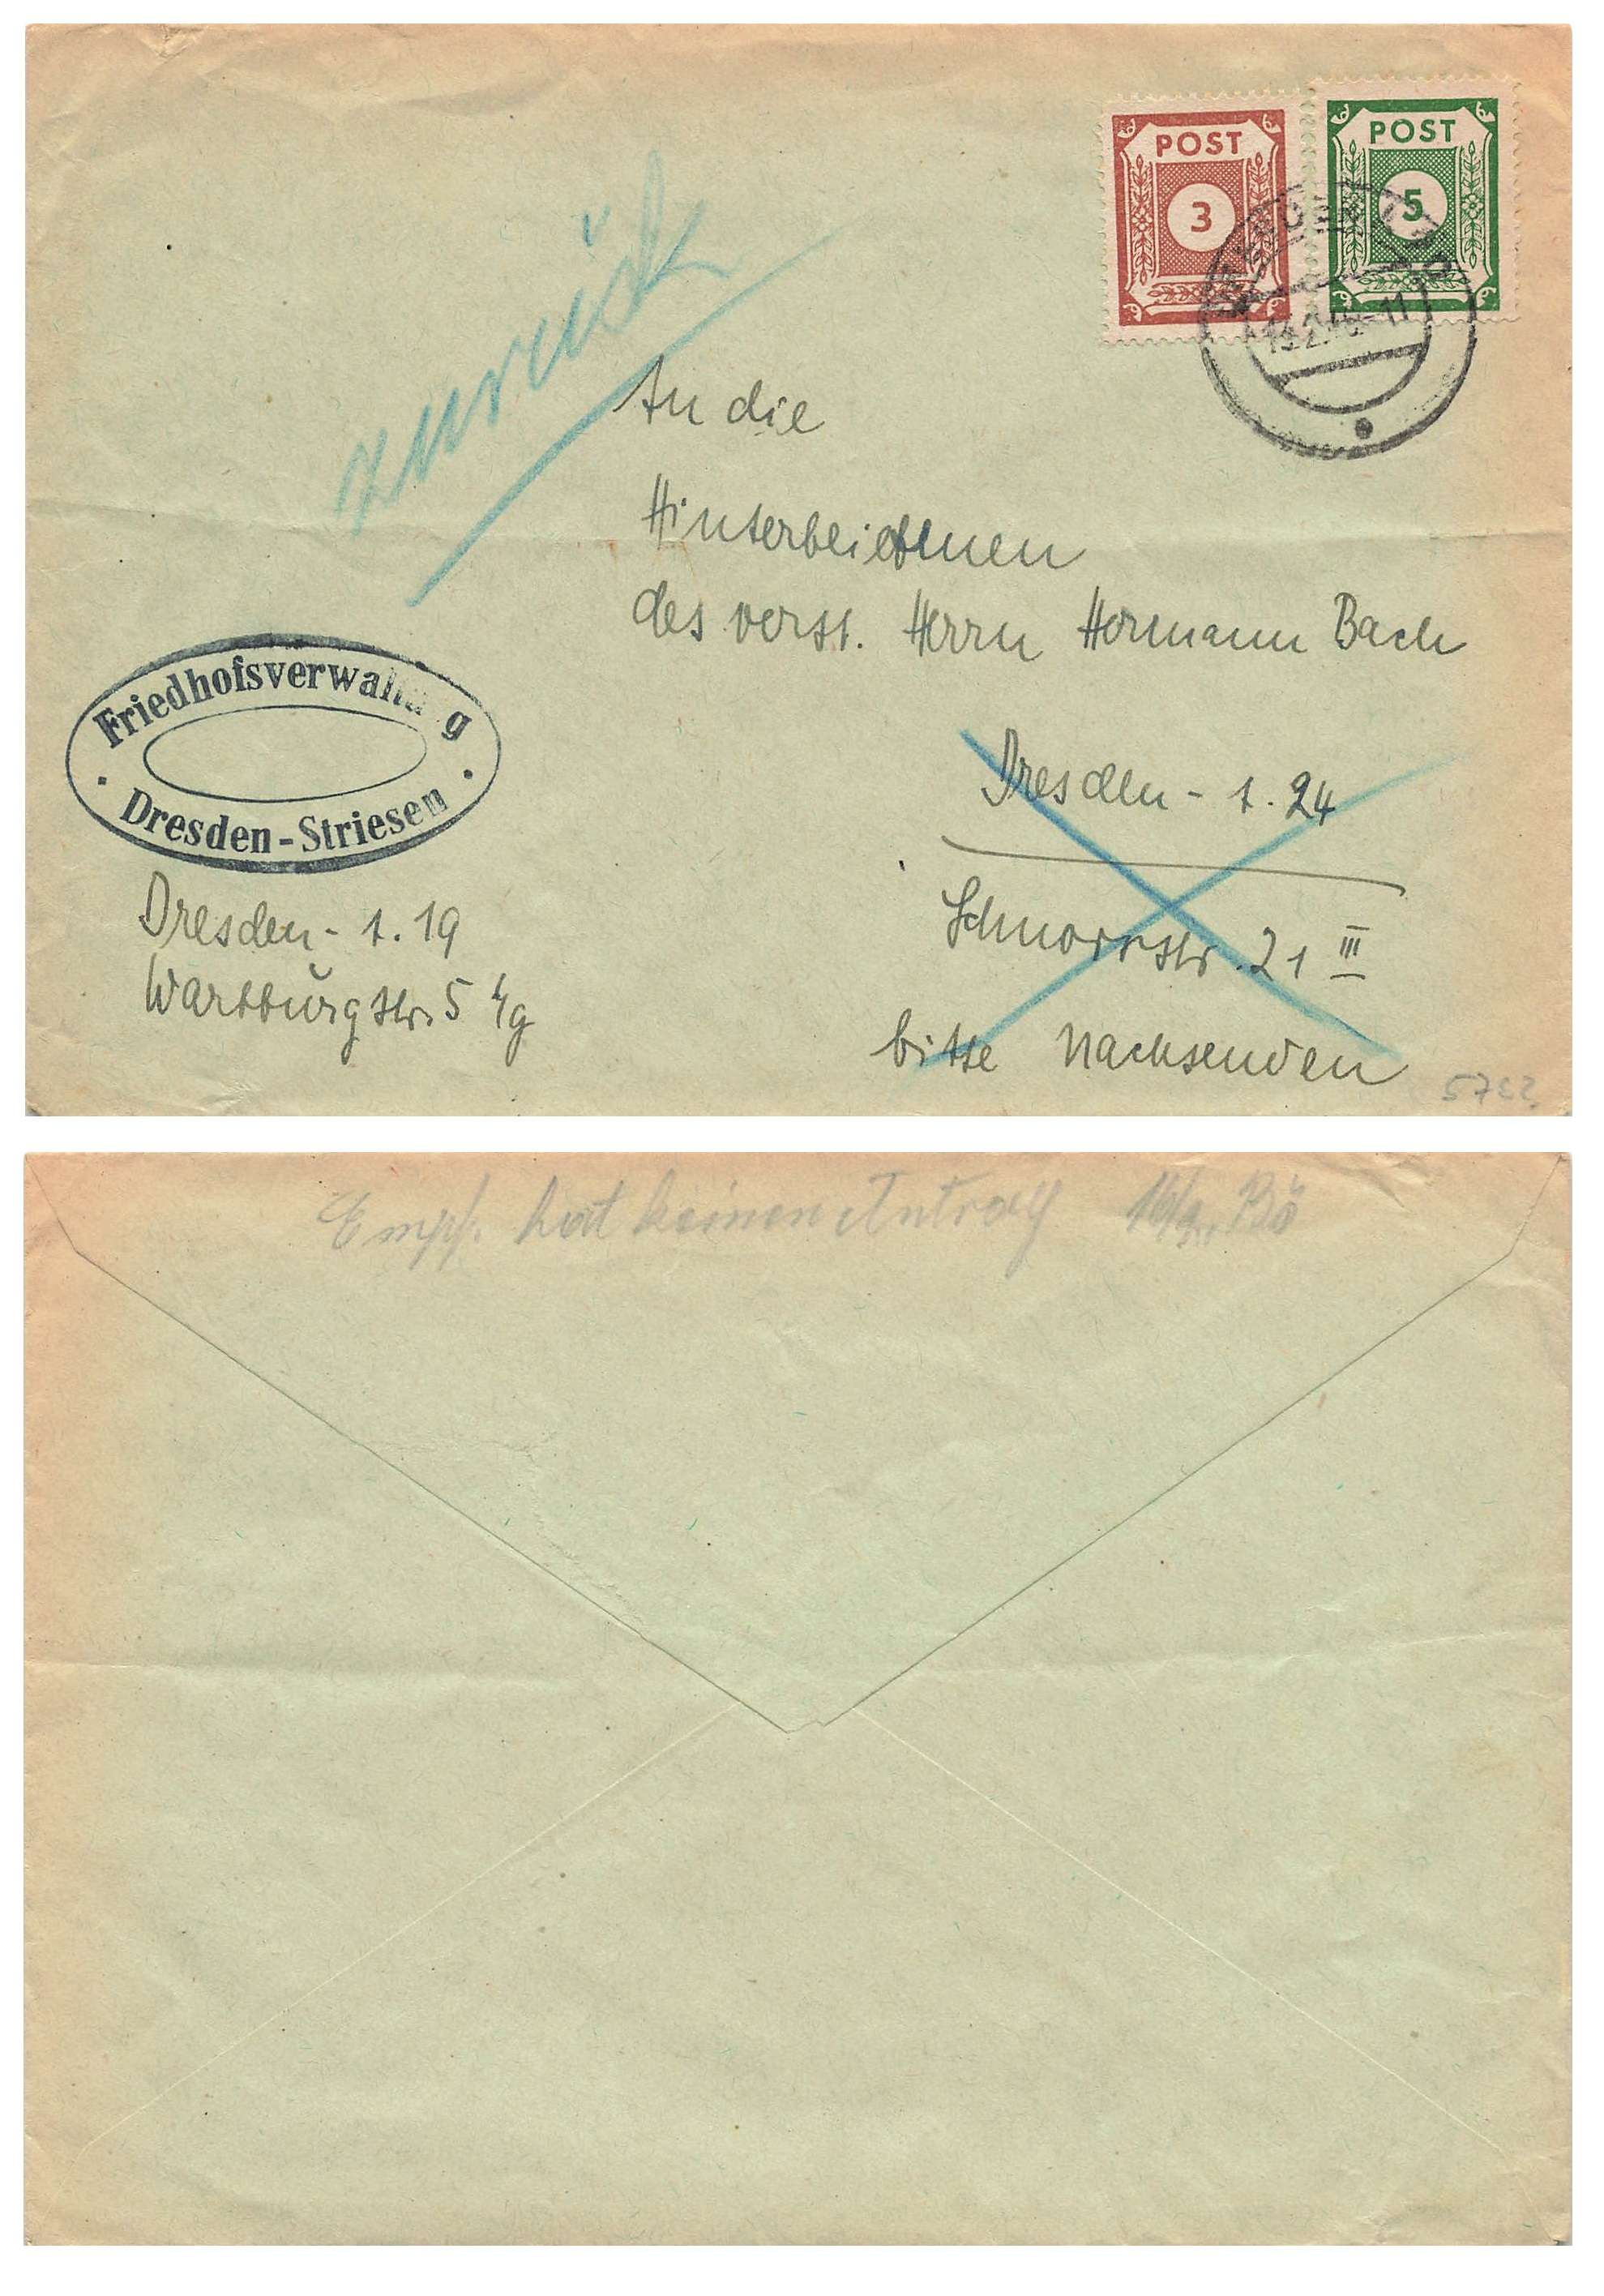 POST
3
POST
5
zurück
An die
Hinterbliebenen
des verst. Herrn Hermann Bach
Friedhofsverwaltung
Dresden-Striesen
Dresden - A. 24
Schnorrstr. 21 III
Dresden - A. 19
Wartburgstr. 5
bitte Nachsenden
Empf. hat keinen Antrag 16/2. Bö